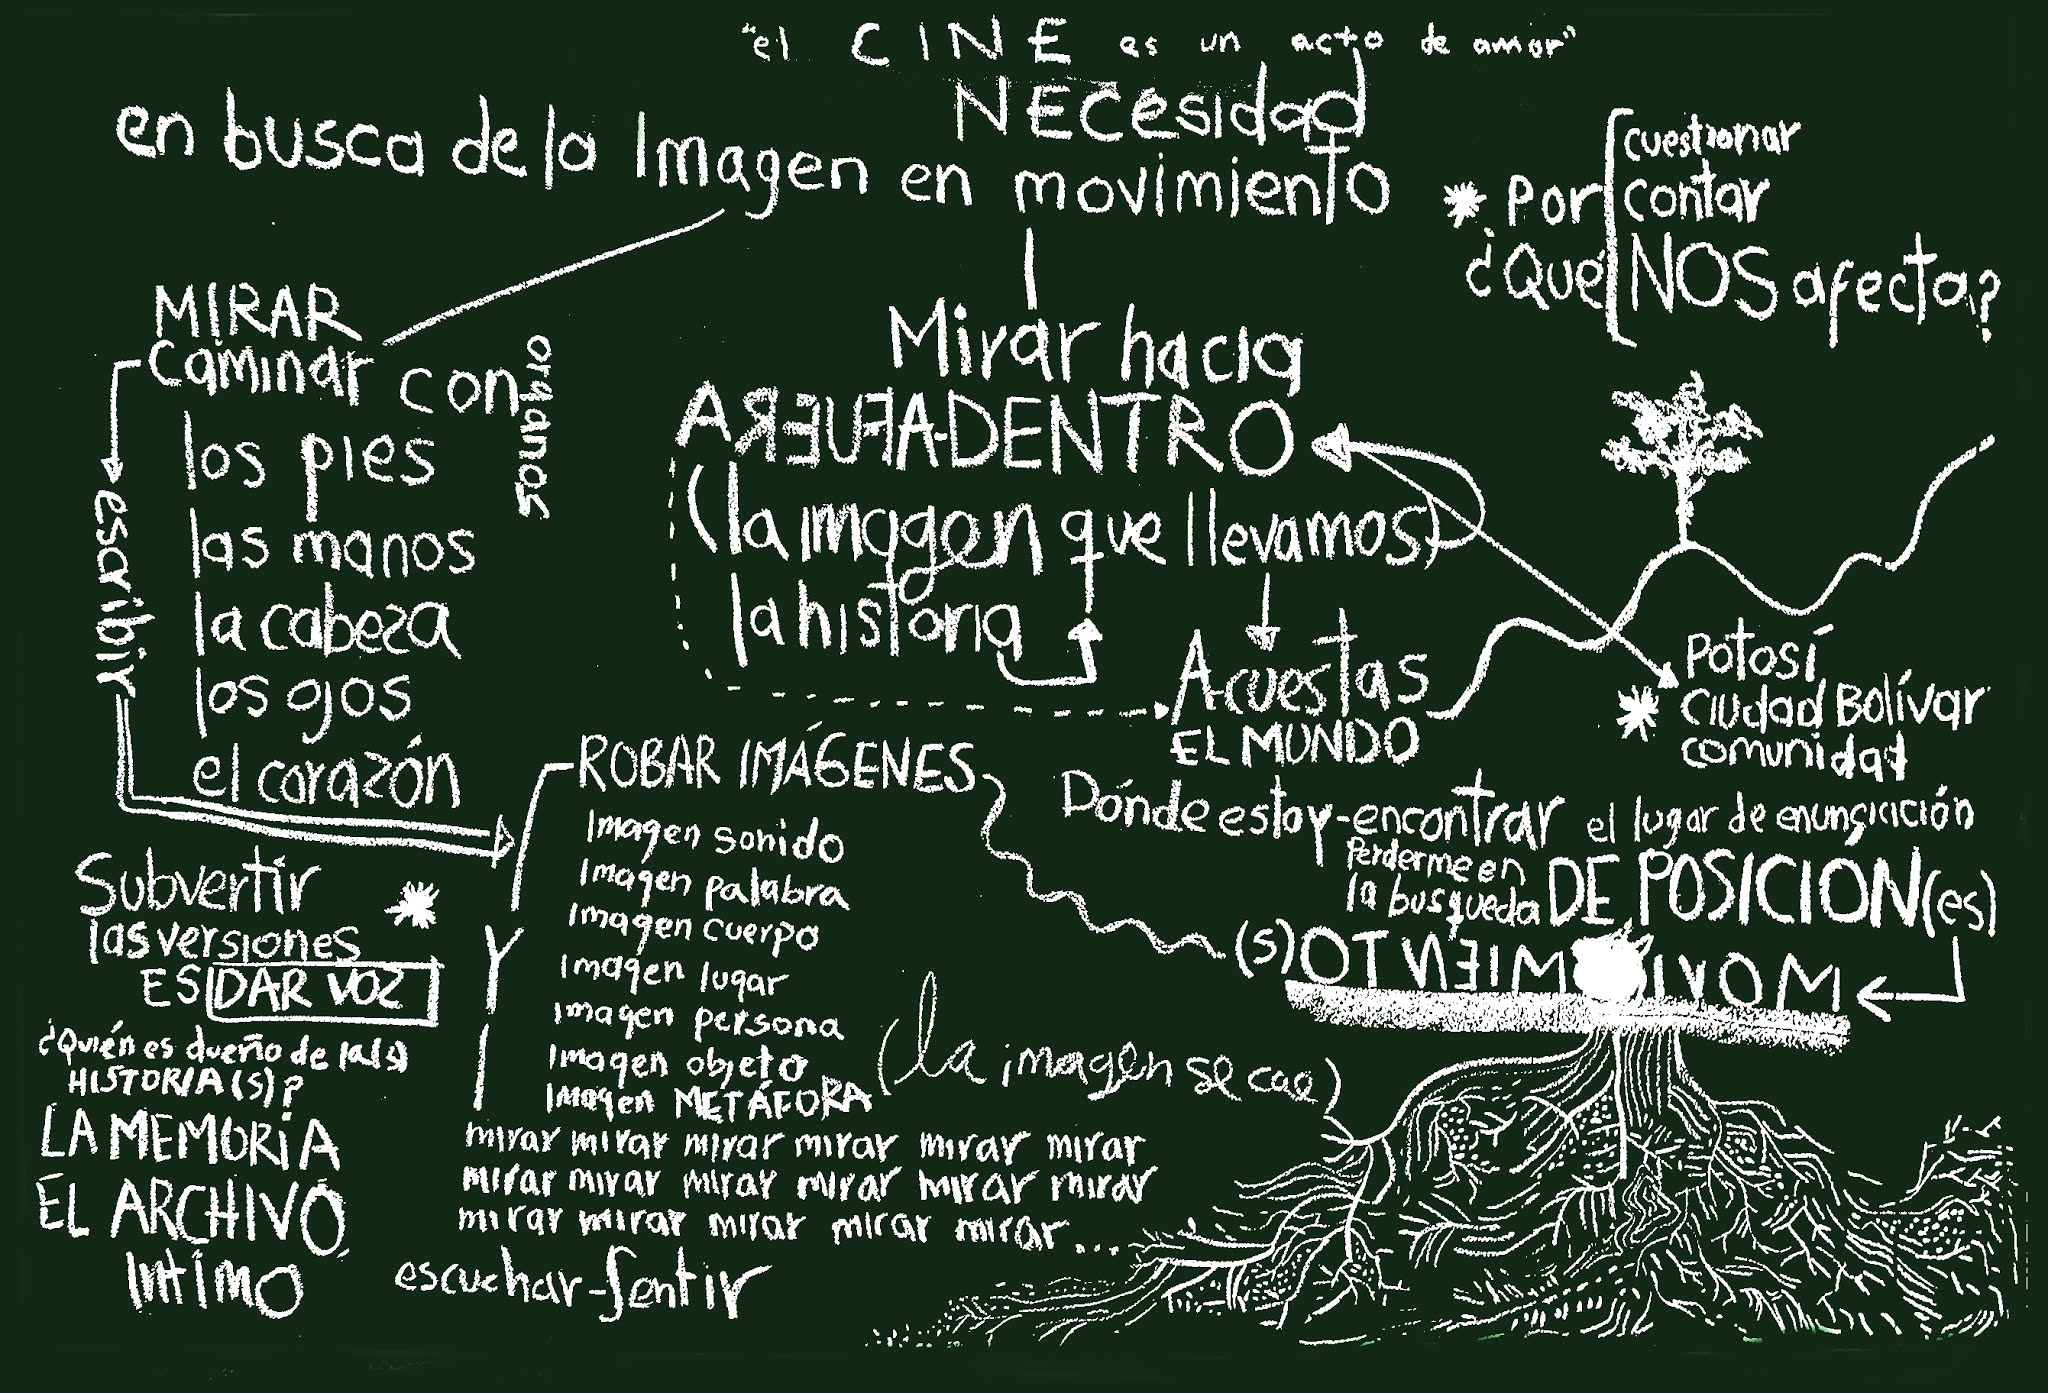 "el CINE es un acto de amor"
NECesidad
en busca de la Imagen en movimiento
* Por
¿Qué
cuestionar
contar
NOS afecta?
MIRAR
Caminar con
organos
los pies
las manos
la cabeza
los ojos
el corazón
escribir
Mirar hacia
AREUFA-DENTRO
(la imagen que llevamos)
la historia
A-cuestas
EL MUNDO
Potosí
* Ciudad Bolívar
comunidad
ROBAR IMÁGENES
Imagen sonido
Imagen palabra
Imagen cuerpo
Imagen lugar
Imagen persona
Imagen objeto
Imagen METÁFORA
Y
(la imagen se cae)
mirar mirar mirar mirar mirar mirar
mirar mirar mirar mirar mirar mirar
mirar mirar mirar mirar mirar...
escuchar-sentir
Dónde estoy-encontrar el lugar de enunciación
Perderme en
la busqueda
DE POSICIÓN(es)
MOVIMIENTO(s)
Subvertir *
las versiones
ES DAR VOZ
¿Quién es dueño de la(s)
HISTORIA(S)?
LA MEMORiA
EL ARCHIVO
INTíMO